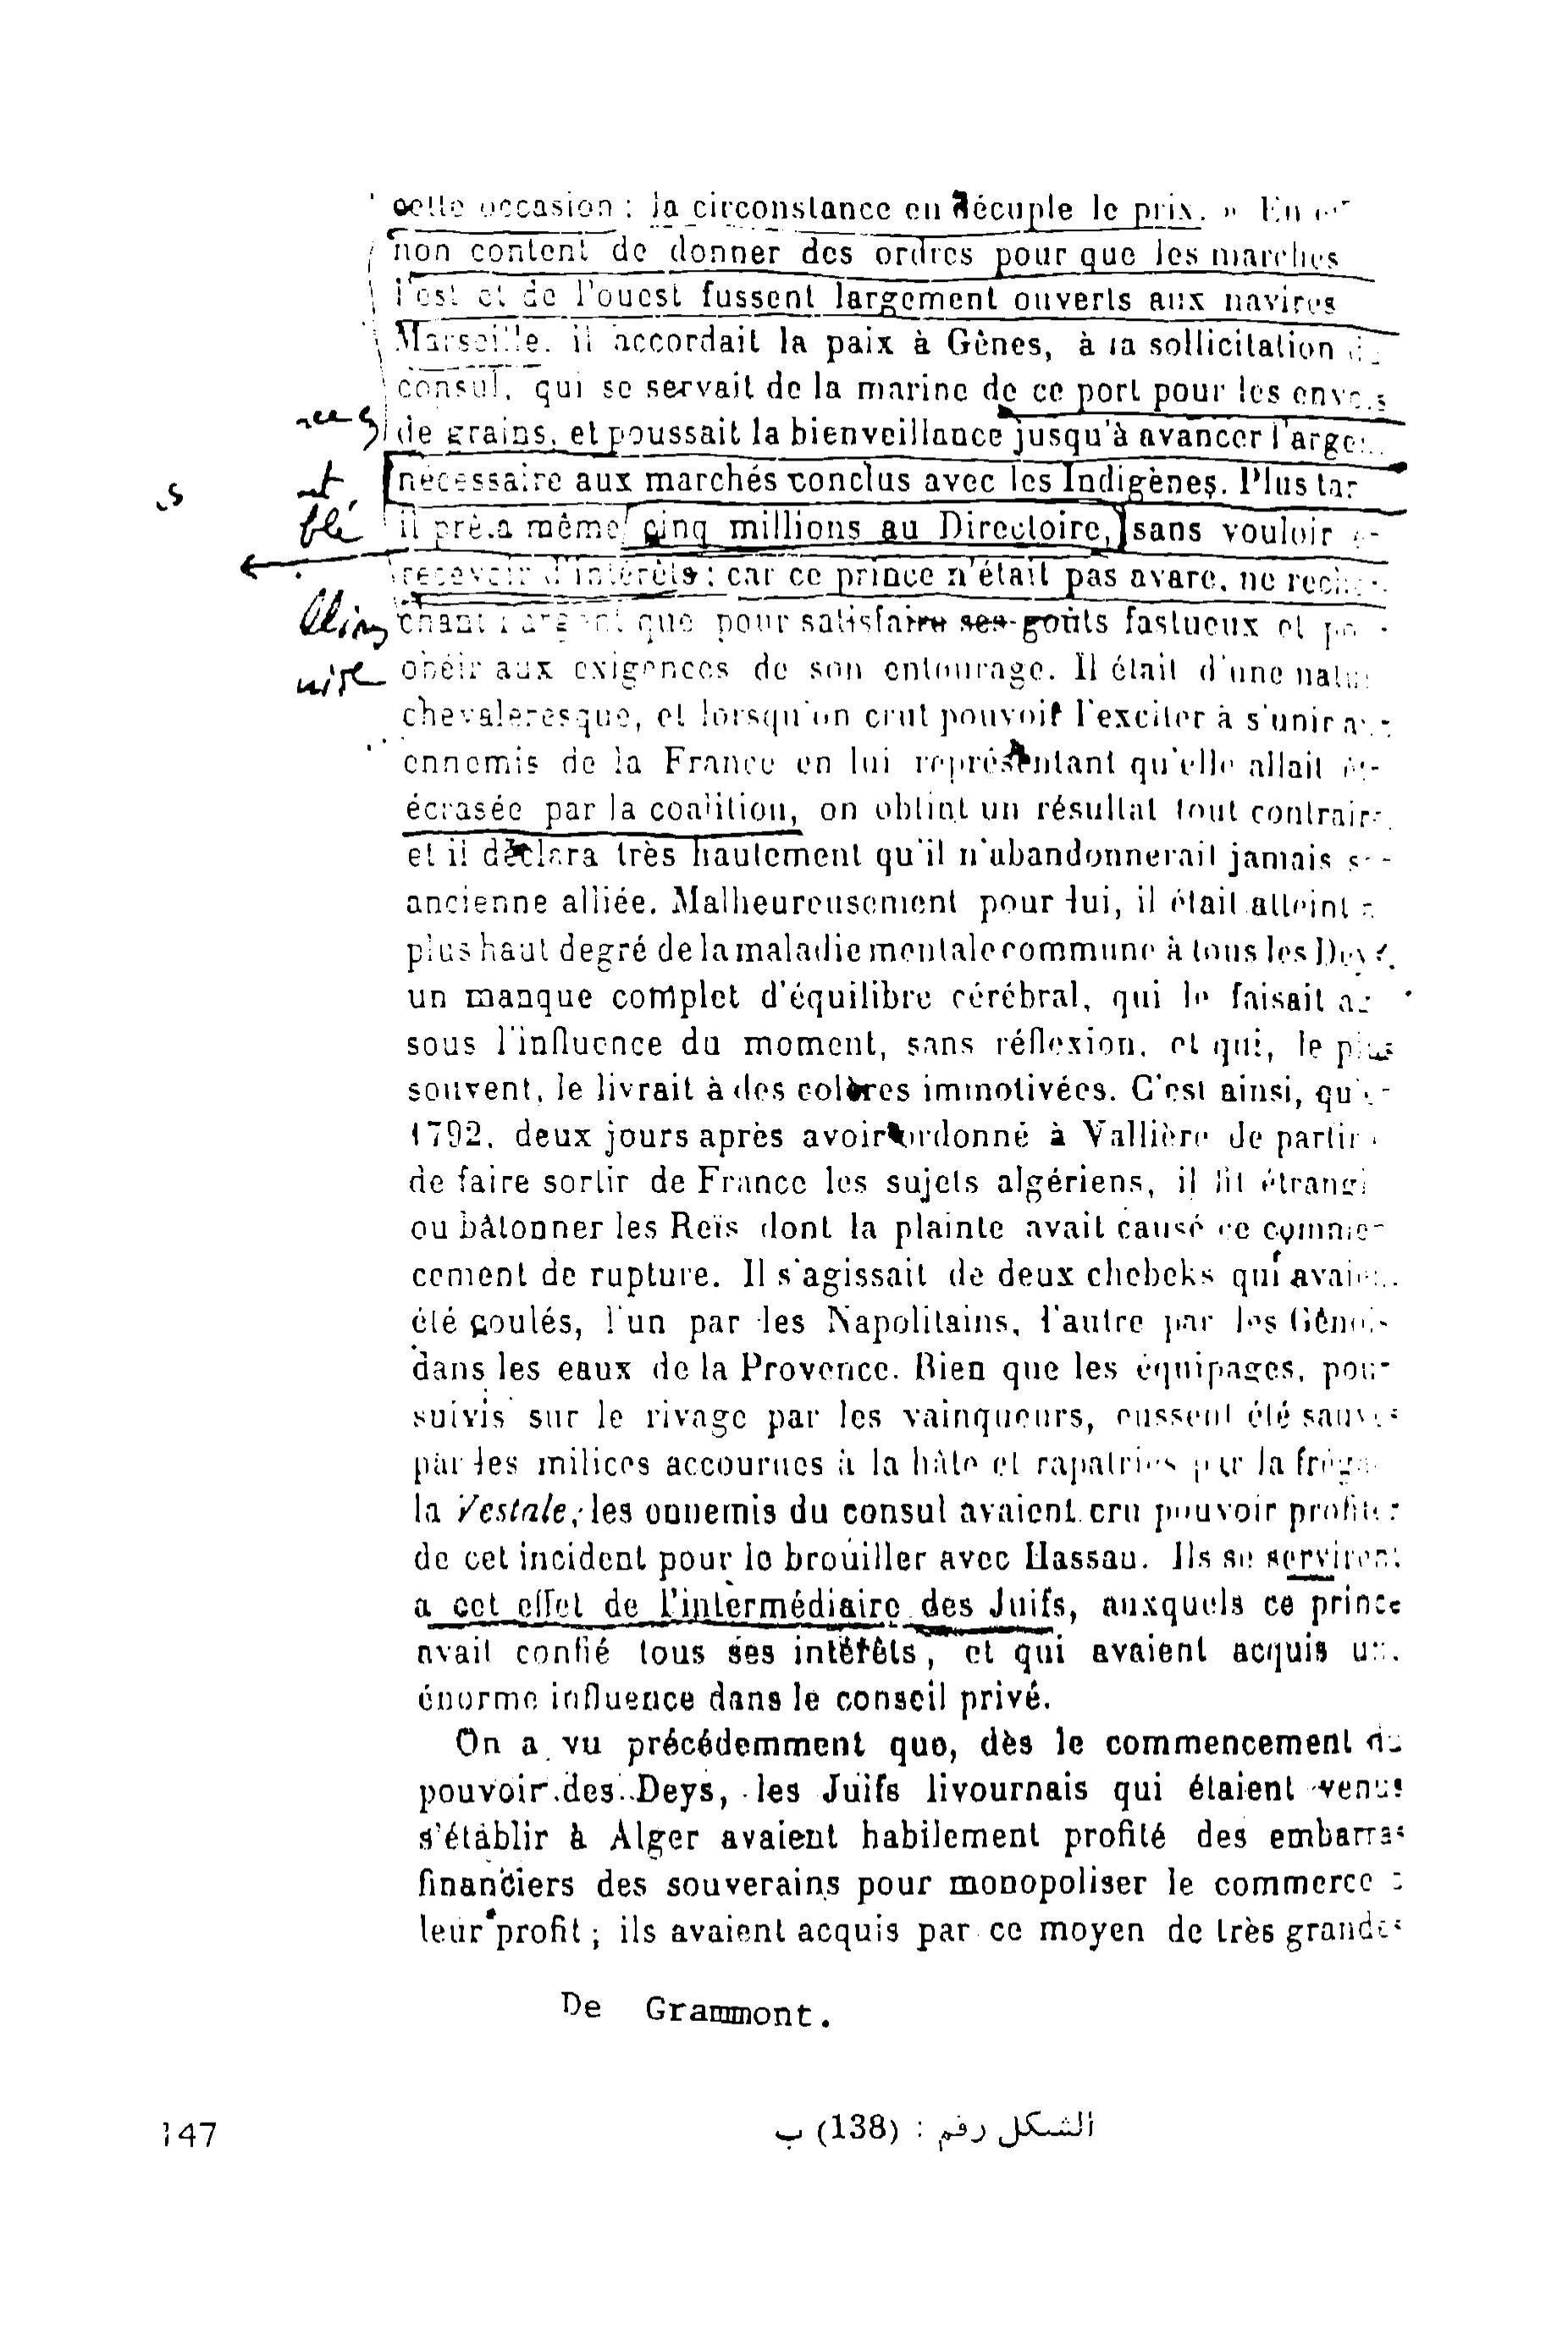 occasion : la circonstance en décuple le prix. » En
non content de donner des ordres pour que les marchés
l'est et de l'ouest fussent largement ouverts aux navires
Marseille, il accordait la paix à Gênes, à la sollicitation
consul, qui se servait de la marine de ce port pour les
de grains, et poussait la bienveillance jusqu'à avancer
nécessaire aux marchés conclus avec les Indigènes. Plus
blé
il même cinq millions au Directoire, sans vouloir
recevoir d'intérêts : car ce prince n'était pas avare, ne
que pour satisfaire ses goûts fastueux et
obéir aux exigences de son entourage. Il était d'une
chevaleresque, et lorsqu'on crut pouvoir l'exciter à s'unir
ennemis de la France en lui représentant qu'elle allait
écrasée par la coalition, on obtint un résultat tout
et il déclara très hautement qu'il n'abandonnerait jamais
ancienne alliée. Malheureusement pour lui, il était atteint
plus haut degré de la maladie mentale commune à tous les
un manque complet d'équilibre cérébral, qui le faisait
sous l'influence du moment, sans réflexion, et qui, le plus
souvent, le livrait à des colères immotivées. C'est ainsi,
1792, deux jours après avoir ordonné à Vallière de partir
de faire sortir de France les sujets algériens, il fit
ou bâtonner les Reïs dont la plainte avait causé ce
cement de rupture. Il s'agissait de deux chebeks qui
été coulés, l'un par les Napolitains, l'autre par les
dans les eaux de la Provence. Bien que les équipages,
suivis sur le rivage par les vainqueurs, eussent été
par les milices accourues à la hâte et rapatriés par la
la Vestale, les ennemis du consul avaient cru pouvoir profiter
de cet incident pour le brouiller avec Hassan. Ils se servirent
a cet effet de l'intermédiaire des Juifs, auxquels ce prince
avait confié tous ses intérêts, et qui avaient acquis
énorme influence dans le conseil privé.
On a vu précédemment que, dès le commencement
pouvoir des Deys, les Juifs livournais qui étaient venus
s'établir à Alger avaient habilement profité des embarras
financiers des souverains pour monopoliser le commerce
leur profit ; ils avaient acquis par ce moyen de très grandes
De Grammont.
الشكل رقم : (138) ب
147